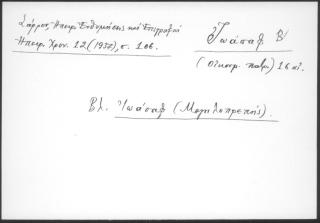 Σάρρος, Ηπειρ. Ενθυμήσεις και Επιγραφαί
Ηπειρ. Χρον. 12 (1937), σ. 106.
Ἰωάσαφ Β΄
(Οἰκουμ. πατρ.) 16 αἰ.
Βλ. Ἰωάσαφ (Μεγαλοπρεπής).